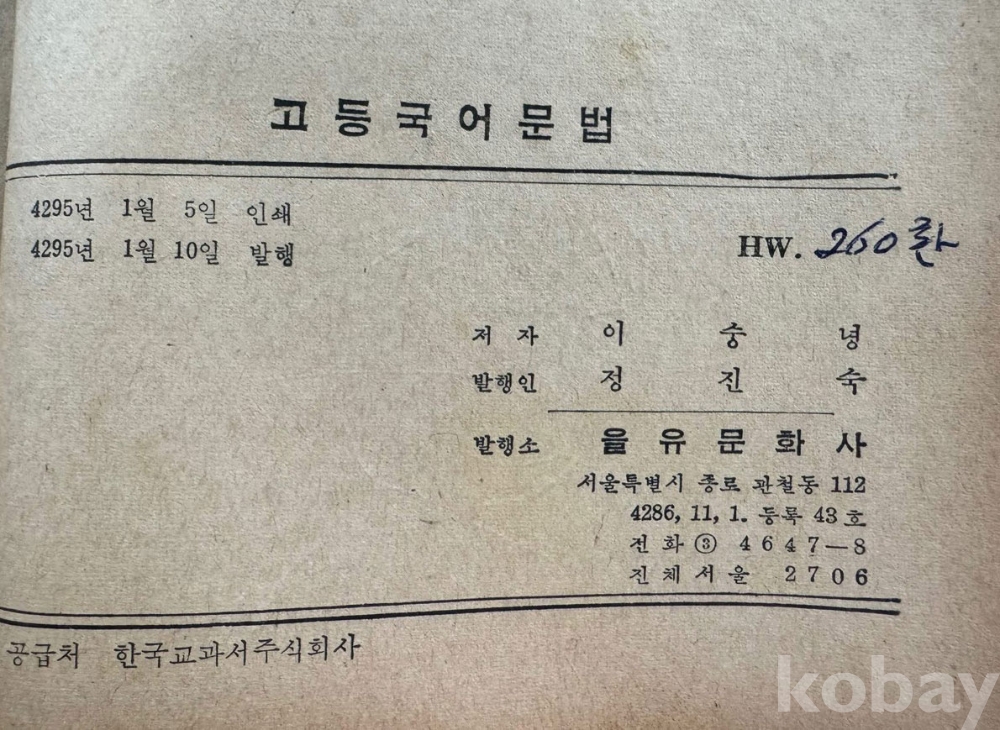 고등국어문법
4295년 1월 5일 인쇄
4295년 1월 10일 발행
HW. 260환
저 자 이 숭 녕
발행인 정 진 숙
발행소 을 유 문 화 사
서울특별시 종로 관철동 112
4286, 11, 1. 등록 43호
전 화 ③ 4 6 4 7 — 8
진 체 서 울 2 7 0 6
공급처 한국교과서주식회사
kobay